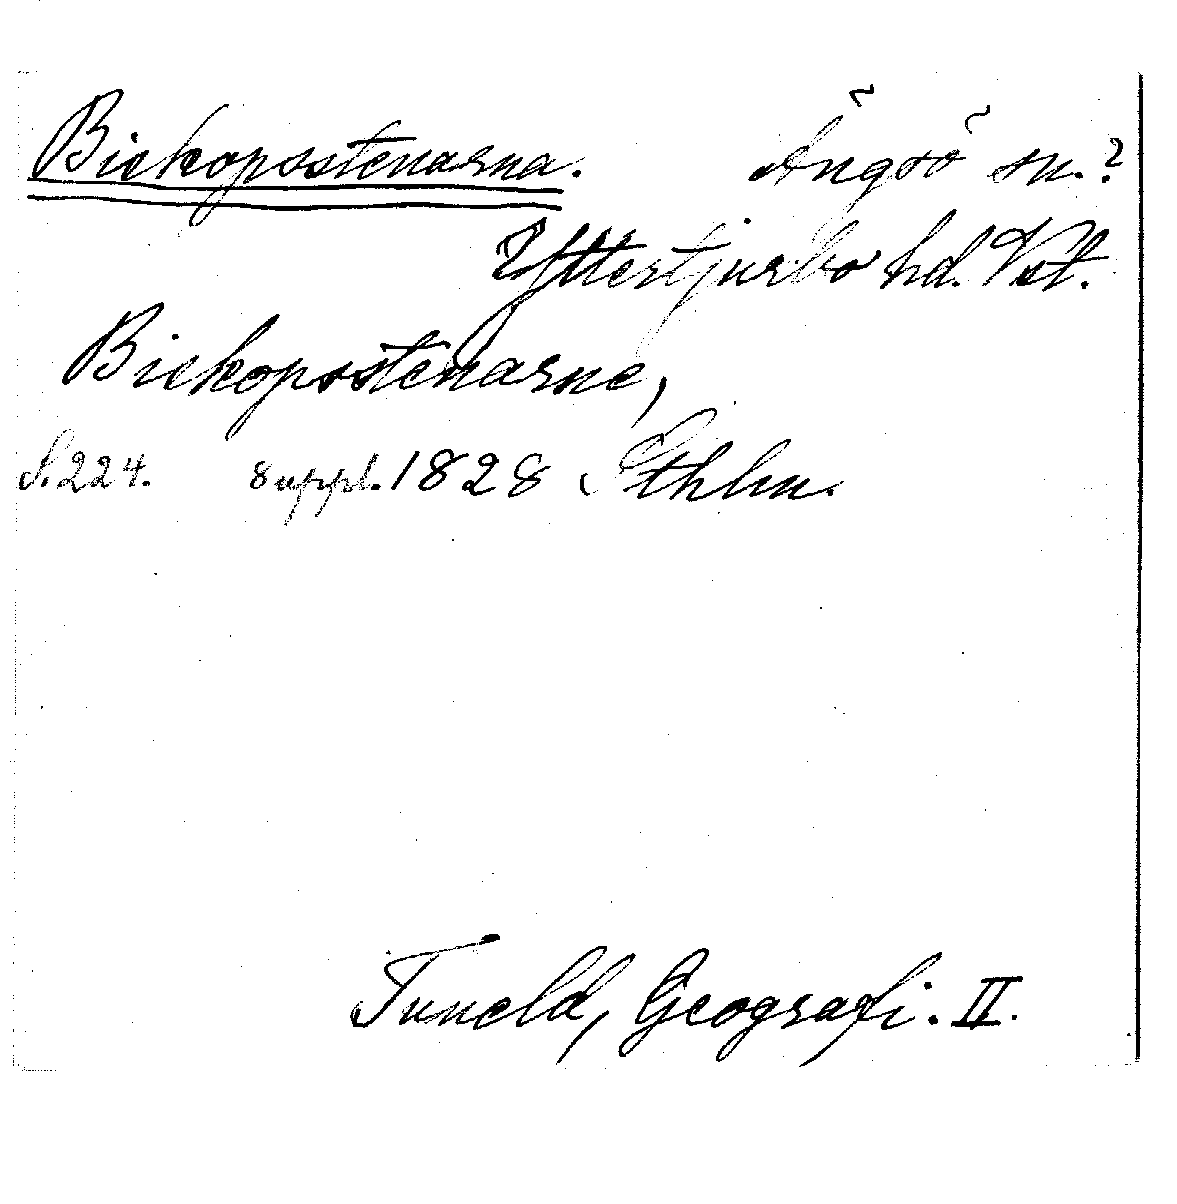 Biskopsstenarna. Ängsö sn.?
Yttertjurbo hd. Vst.
Biskopsstenarne,
S. 224. Suppl. 1828 Sthlm.
Tuneld, Geografi. II.